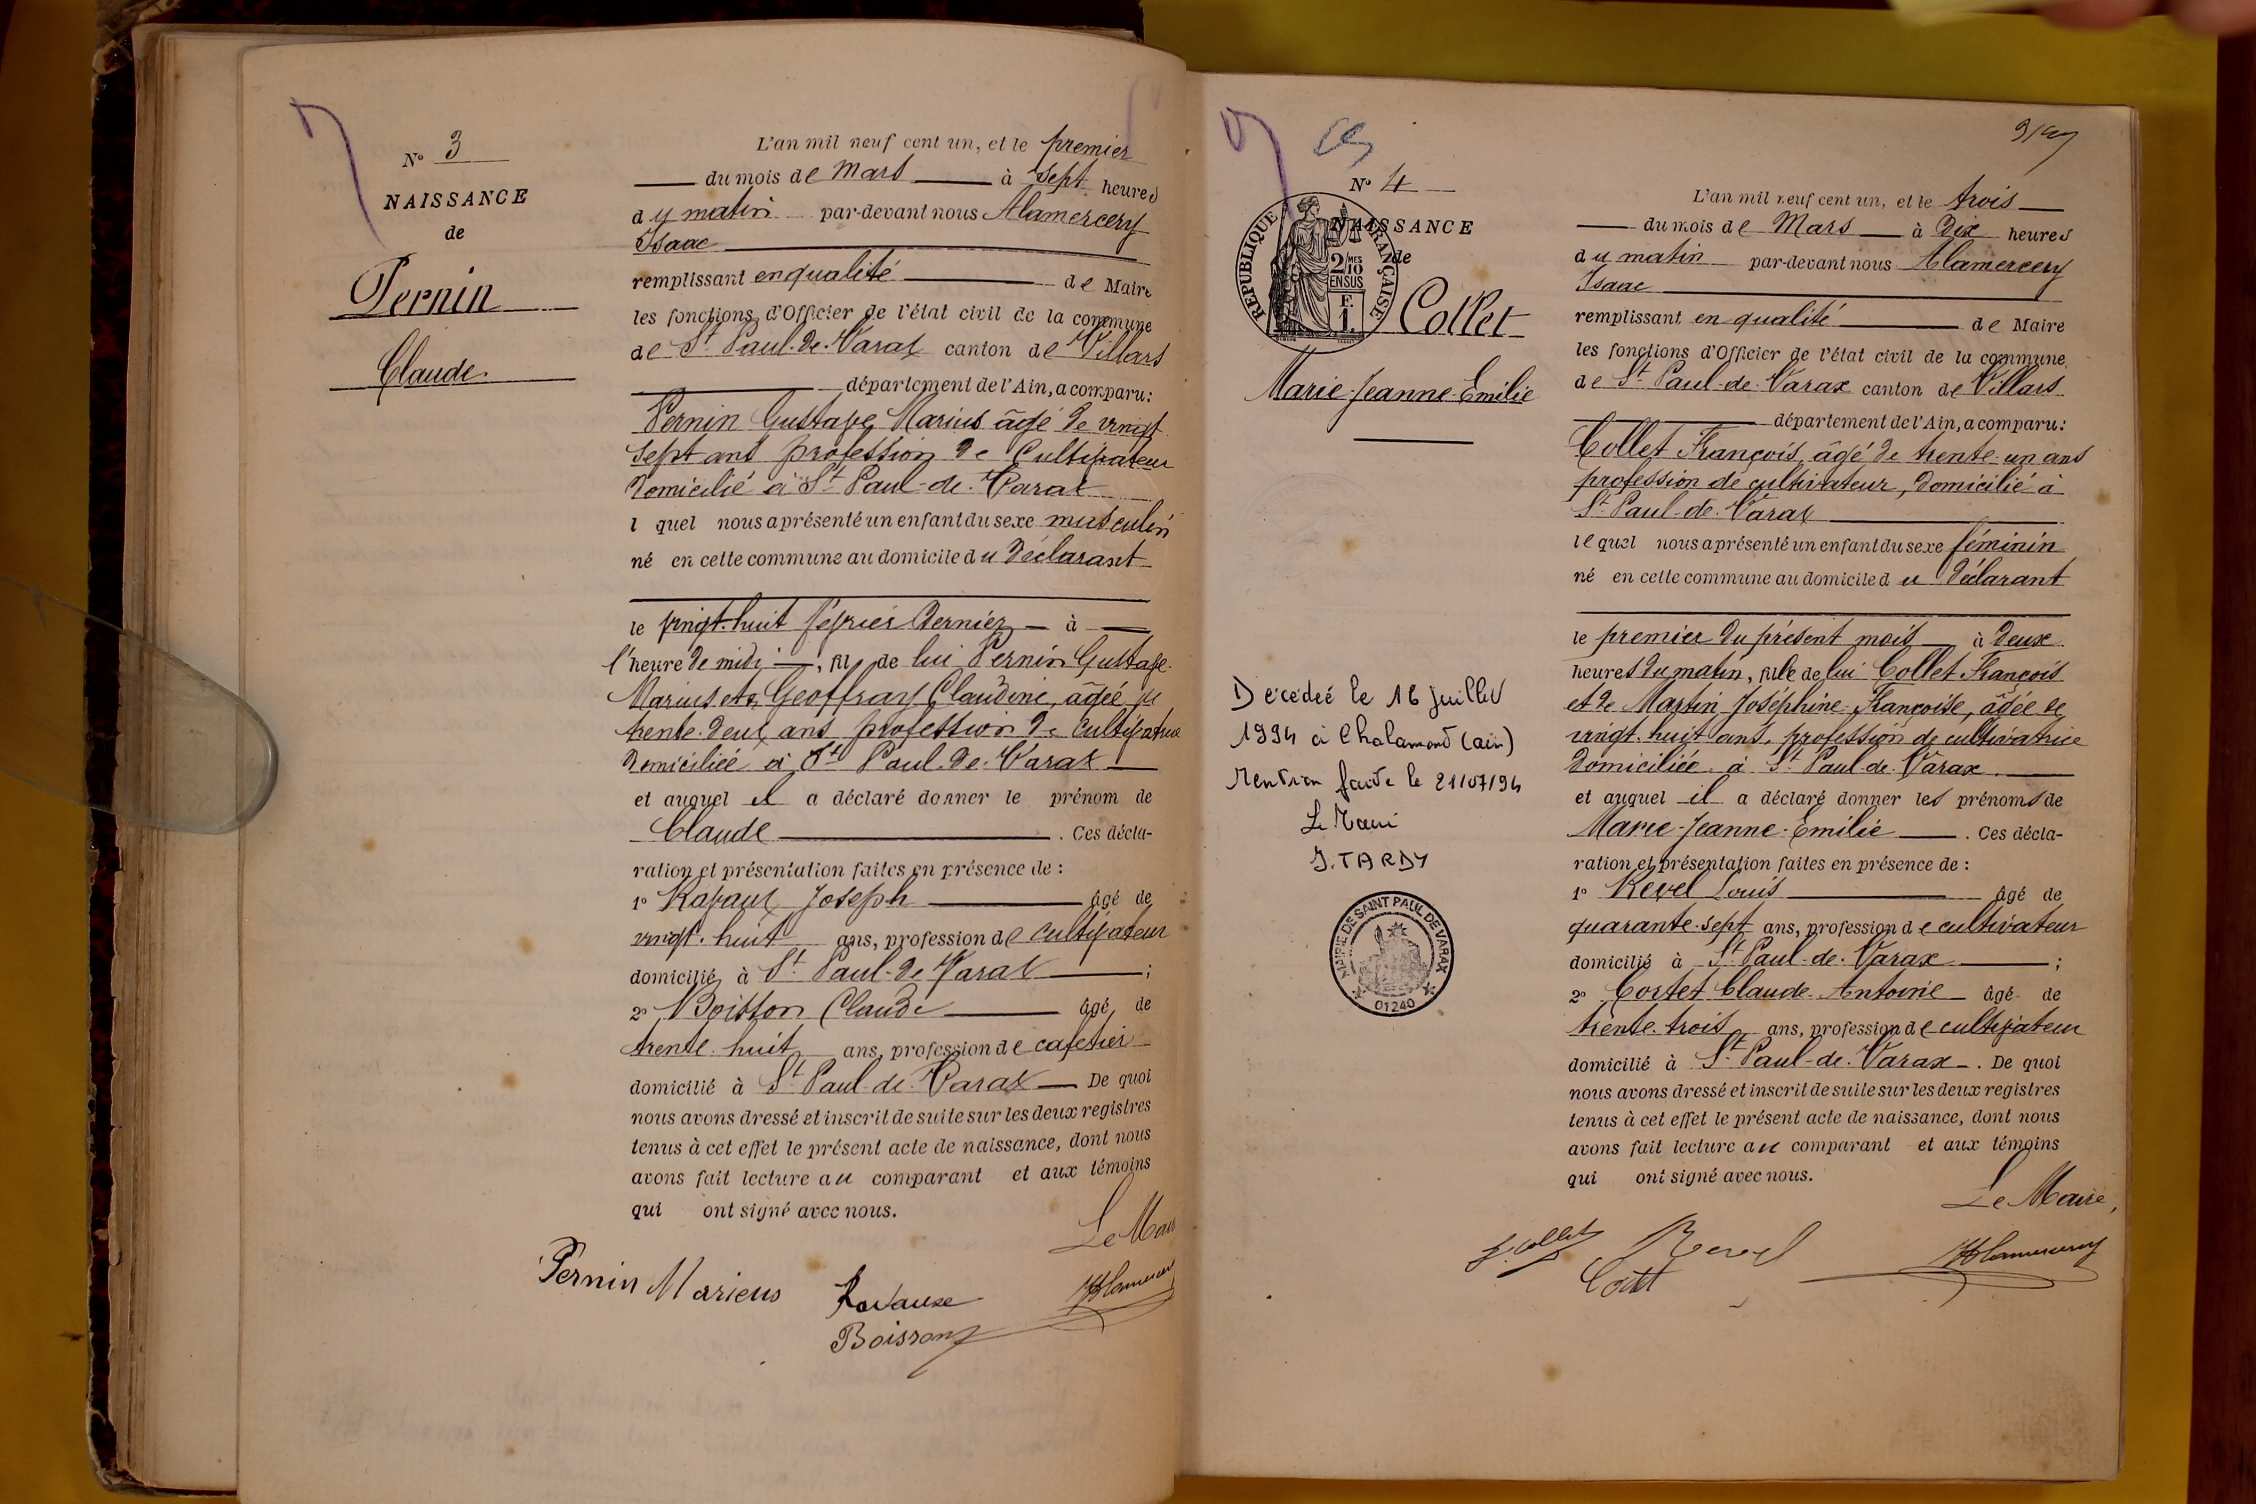 N° 3
NAISSANCE
de
Pernin
Claude
L'an mil neuf cent un, et le premier
du mois de Mars à sept heures
du matin par-devant nous Alamercery
Isaac
remplissant en qualité de Maire
les fonctions d'Officier de l'état civil de la commune
de St Paul-de-Varax canton de Villars
département de l'Ain, a comparu:
Pernin Gustave Marius âgé de vingt
sept ans profession de Cultivateur
domicilié à St Paul-de-Varax
l quel nous a présenté un enfant du sexe masculin
né en cette commune au domicile du déclarant
le vingt-huit février dernier à
l'heure de midi, fils de lui Pernin Gustave
Marius et de Geoffray Claudine, âgée de
trente-deux ans profession de Cultivatrice
domiciliée à St Paul-de-Varax
et auquel il a déclaré donner le prénom de
Claude. Ces décla-
ration et présentation faites en présence de :
1° Ravaux Joseph âgé de
vingt-huit ans, profession de cultivateur
domicilié à St Paul-de-Varax ;
2° Boisson Claude âgé de
trente-huit ans, profession de cafetier
domicilié à St Paul-de-Varax De quoi
nous avons dressé et inscrit de suite sur les deux registres
tenus à cet effet le présent acte de naissance, dont nous
avons fait lecture au comparant et aux témoins
qui ont signé avec nous.
Le Maire
Pernin Marius
Ravaux
Boisson
N° 4
NAISSANCE
de
RÉPUBLIQUE FRANÇAISE
2/10 MES
EN SUS
F.
1.
Collet
Marie-Jeanne-Emilie
Décédée le 16 juillet
1994 à Chalamont (ain)
Mention faite le 21/07/94
Le Maire
J. TARDY
MAIRIE DE SAINT PAUL DE VARAX
01240
L'an mil neuf cent un, et le trois
du mois de Mars à Dix heures
du matin par-devant nous Alamercery
Isaac
remplissant en qualité de Maire
les fonctions d'Officier de l'état civil de la commune
de St Paul-de-Varax canton de Villars
département de l'Ain, a comparu:
Collet François, âgé de trente-un ans
profession de cultivateur, domicilié à
St Paul-de-Varax
lequel nous a présenté un enfant du sexe féminin
né en cette commune au domicile du déclarant
le premier du présent mois à deux
heures du matin, fille de lui Collet François
et de Martin Joséphine-Françoise, âgée de
vingt-huit ans, profession de cultivatrice
domiciliée à St Paul-de-Varax
et auquel il a déclaré donner les prénoms de
Marie-Jeanne-Emilie. Ces décla-
ration et présentation faites en présence de :
1° Revel Louis âgé de
quarante-sept ans, profession de cultivateur
domicilié à St Paul-de-Varax ;
2° Cortet Claude-Antoine âgé de
trente-trois ans, profession de cultivateur
domicilié à St Paul-de-Varax. De quoi
nous avons dressé et inscrit de suite sur les deux registres
tenus à cet effet le présent acte de naissance, dont nous
avons fait lecture au comparant et aux témoins
qui ont signé avec nous.
Le Maire,
F. Collet
Revel